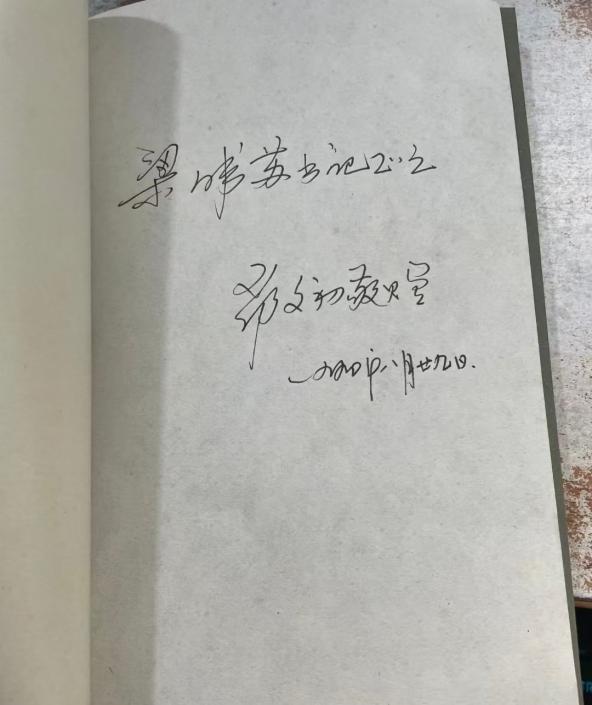 梁晴苏书记正之
邓文初敬赠
一九九四年八月廿九日.